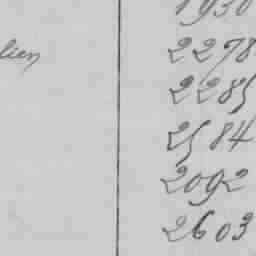 1930
2278
lien 2285
2584
2092
2603